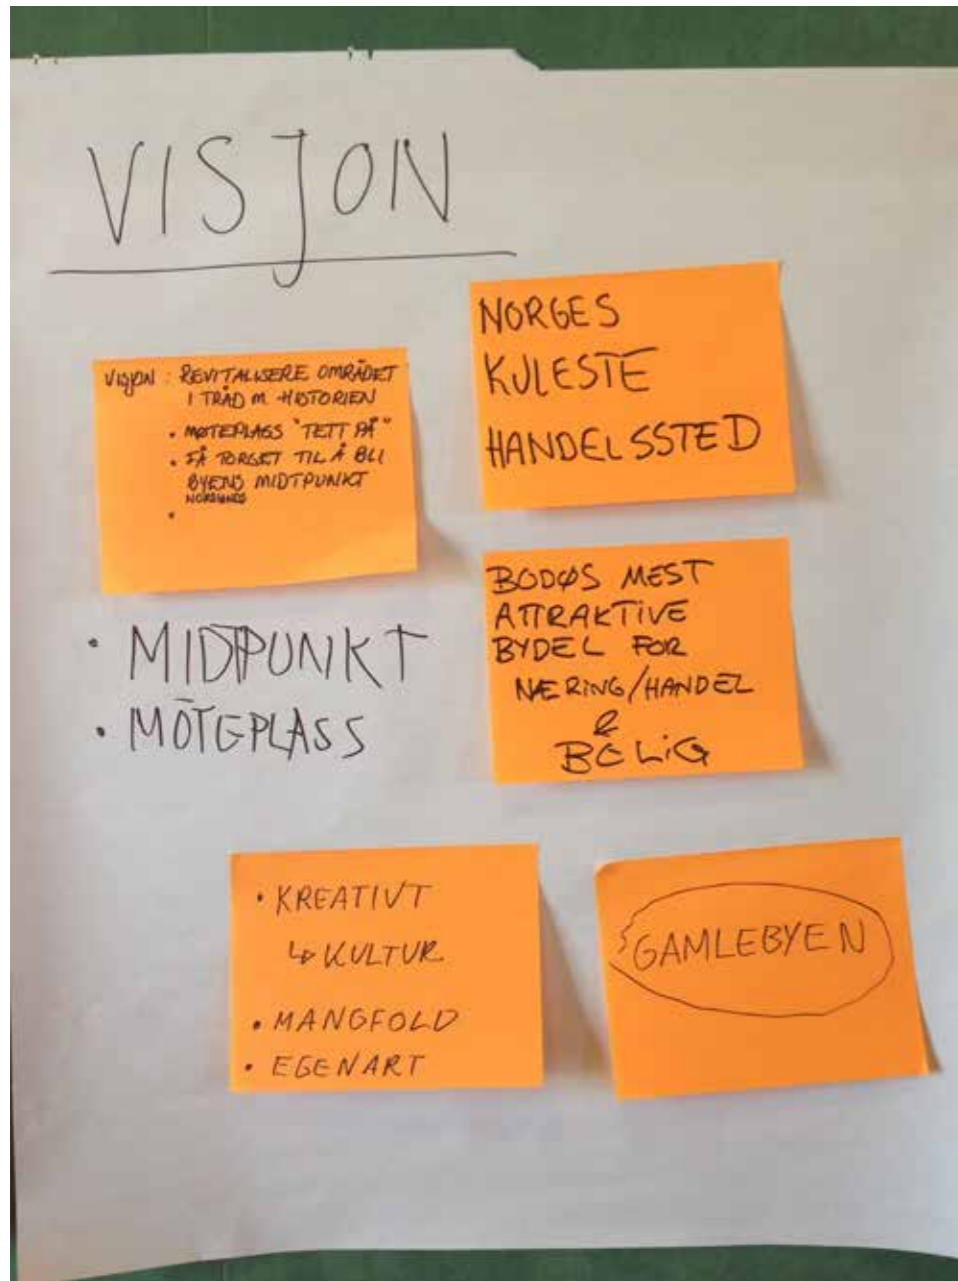 VISJON
VISJON : REVITALISERE OMRÅDET
I TRÅD M. HISTORIEN
• MØTEPLASS "TETT PÅ"
• FÅ TORGET TIL Å BLI
BYENS MIDTPUNKT
NORDLANDS
•
NORGES
KULESTE
HANDELSSTED
• MIDTPUNKT
• MÖTEPLASS
BODØS MEST
ATTRAKTIVE
BYDEL FOR
NÆRING/HANDEL
&
BOLIG
• KREATIVT
↳ KULTUR
• MANGFOLD
• EGENART
GAMLEBYEN